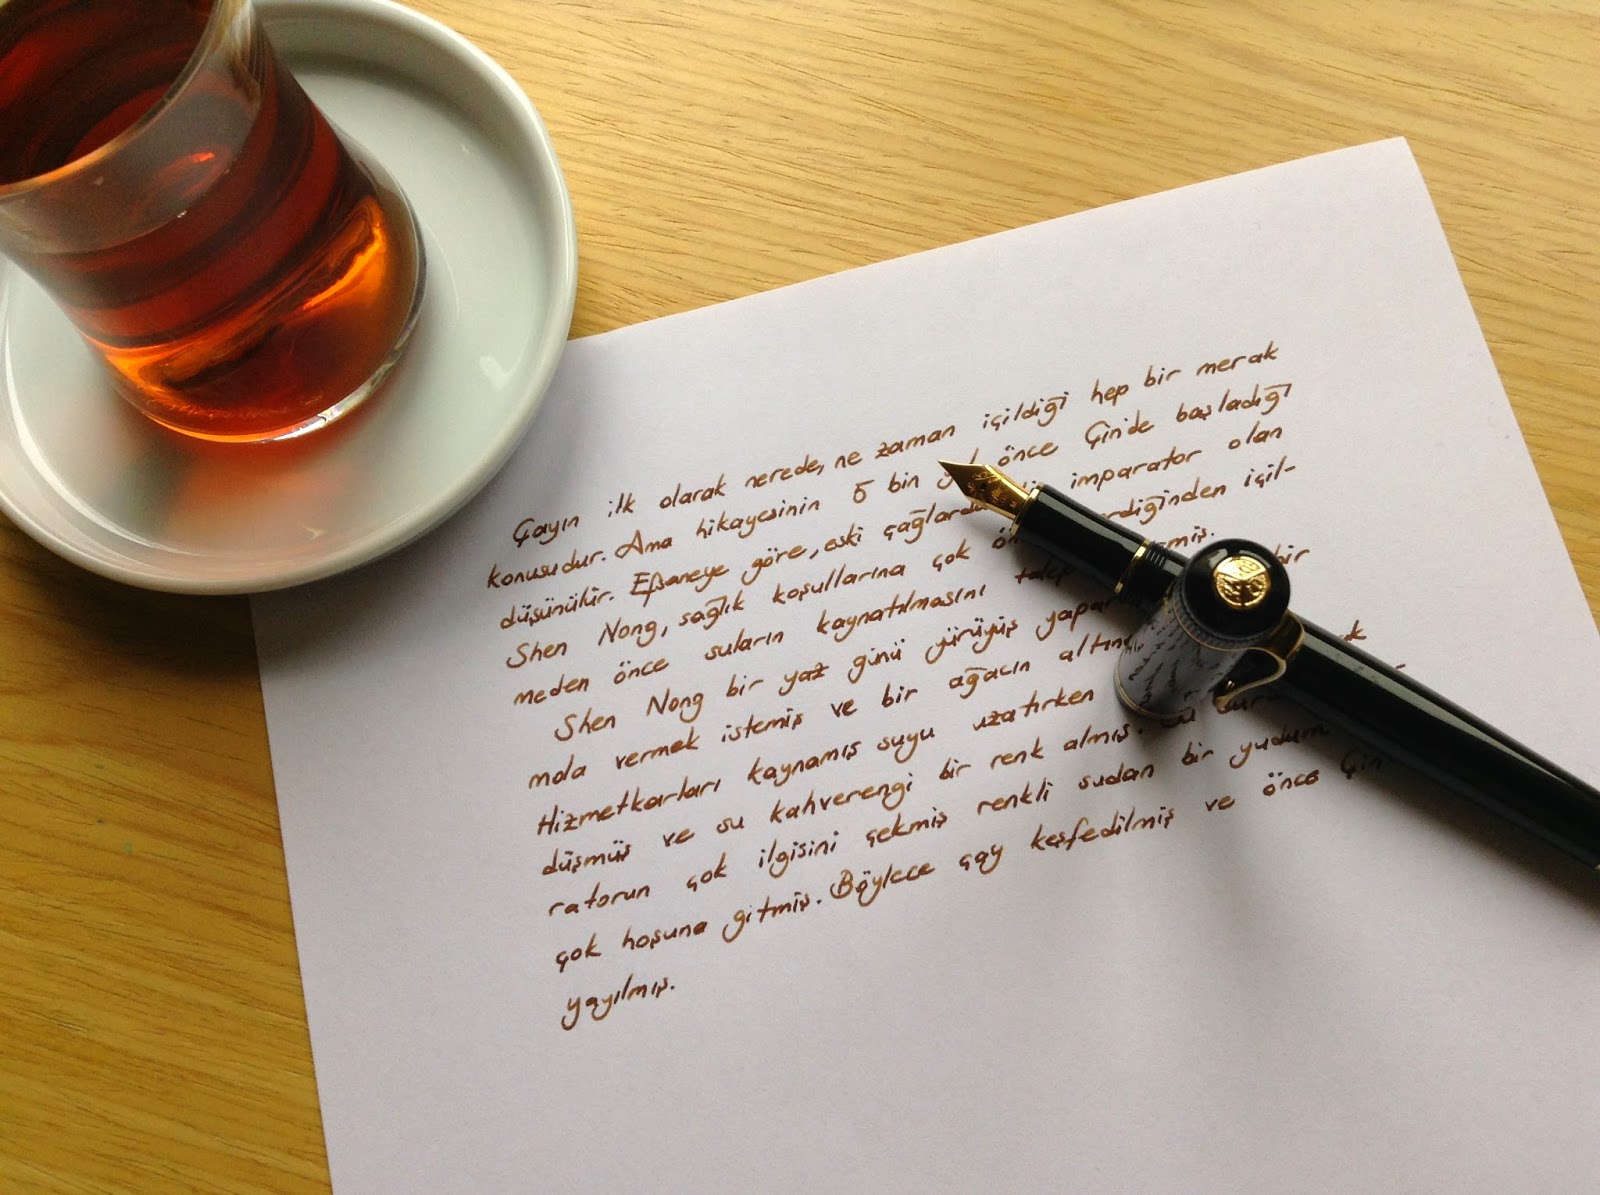 Çayın ilk olarak nerede, ne zaman içildiği hep bir merak
konusudur. Ama hikayesinin 5 bin önce Çin'de başladığı
düşünülür. Efsaneye göre, eski çağlarda imparator olan
Shen Nong, sağlık koşullarına çok içil-
meden önce suların kaynatılmasını
Shen Nong bir yaz günü yürüyüş bir
mola vermek istemiş ve bir ağacın
Hizmetkarları kaynamış suyu uzatırken
düşmüş ve su kahverengi bir renk almış.
ratorun çok ilgisini çekmiş renkli sudan bir yudum
çok hoşuna gitmiş. Böylece çay keşfedilmiş ve önce
yayılmış.